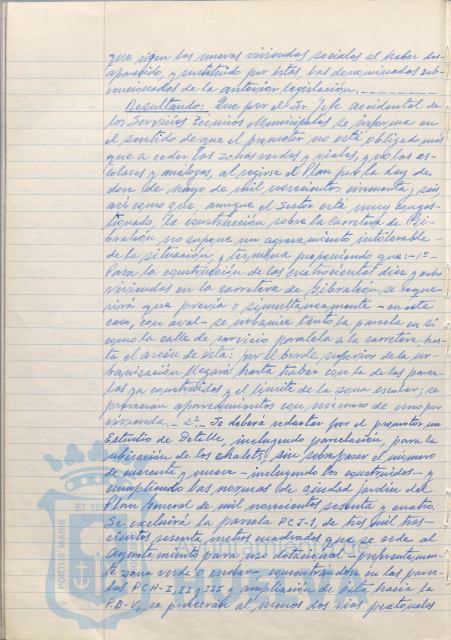 que rigen las nuevas viviendas sociales al haber des-
aparecido, y sustituido por éstas, las denominadas sub-
vencionadas de la anterior legislación.
Resultando: Que por el Sr. Jefe accidental de
los Servicios Técnicos Municipales se informa en
el sentido de que el promotor no está obligado más
que a ceder las zonas verdes y viales, y no los es-
colares y análogos, al regirse el Plan por la Ley de
doce de mayo de mil novecientos cincuenta y seis
así como que, aunque el Sector está muy conges-
tionado, la construcción sobre la carretera de Gi-
braleón no supone un agravamiento intolerable
de la situación, y termina proponiendo que: 1º-
Para la construcción de las cuatrocientas diez y ocho
viviendas en la carretera de Gibraleón se reque-
rirá que previa o simultáneamente - en este
caso, con aval - se urbanice tanto la parcela en sí
como la calle de servicio paralela a la carretera has-
ta el arcén de ésta: por el borde superior de la ur-
banización llegará hasta trabar con la de las parce-
las ya construidas y el límite de la zona escolar; se
preverán aparcamientos con mínimo de uno por
vivienda. 2º- Se deberá redactar por el promotor un
Estudio de Detalle, incluyendo parcelación, para la
ubicación de los chalets, sin sobrepasar el número
de noventa y nueve - incluyendo los construidos - y
cumpliendo las normas de ciudad jardín del
Plan General de mil novecientos sesenta y cuatro.
Se excluirá la parcela PCJ-1, de tres mil tres-
cientos sesenta metros cuadrados que se cede al
Ayuntamiento para uso dotacional - preferentemen-
te zona verde o escolar -, concentrándose en las parce-
las PCH-I, II y III y ampliación de ésta hacia la
P.B-V, se preverán al menos dos vías peatonales
ET TERRAE
PORTUS MARIS